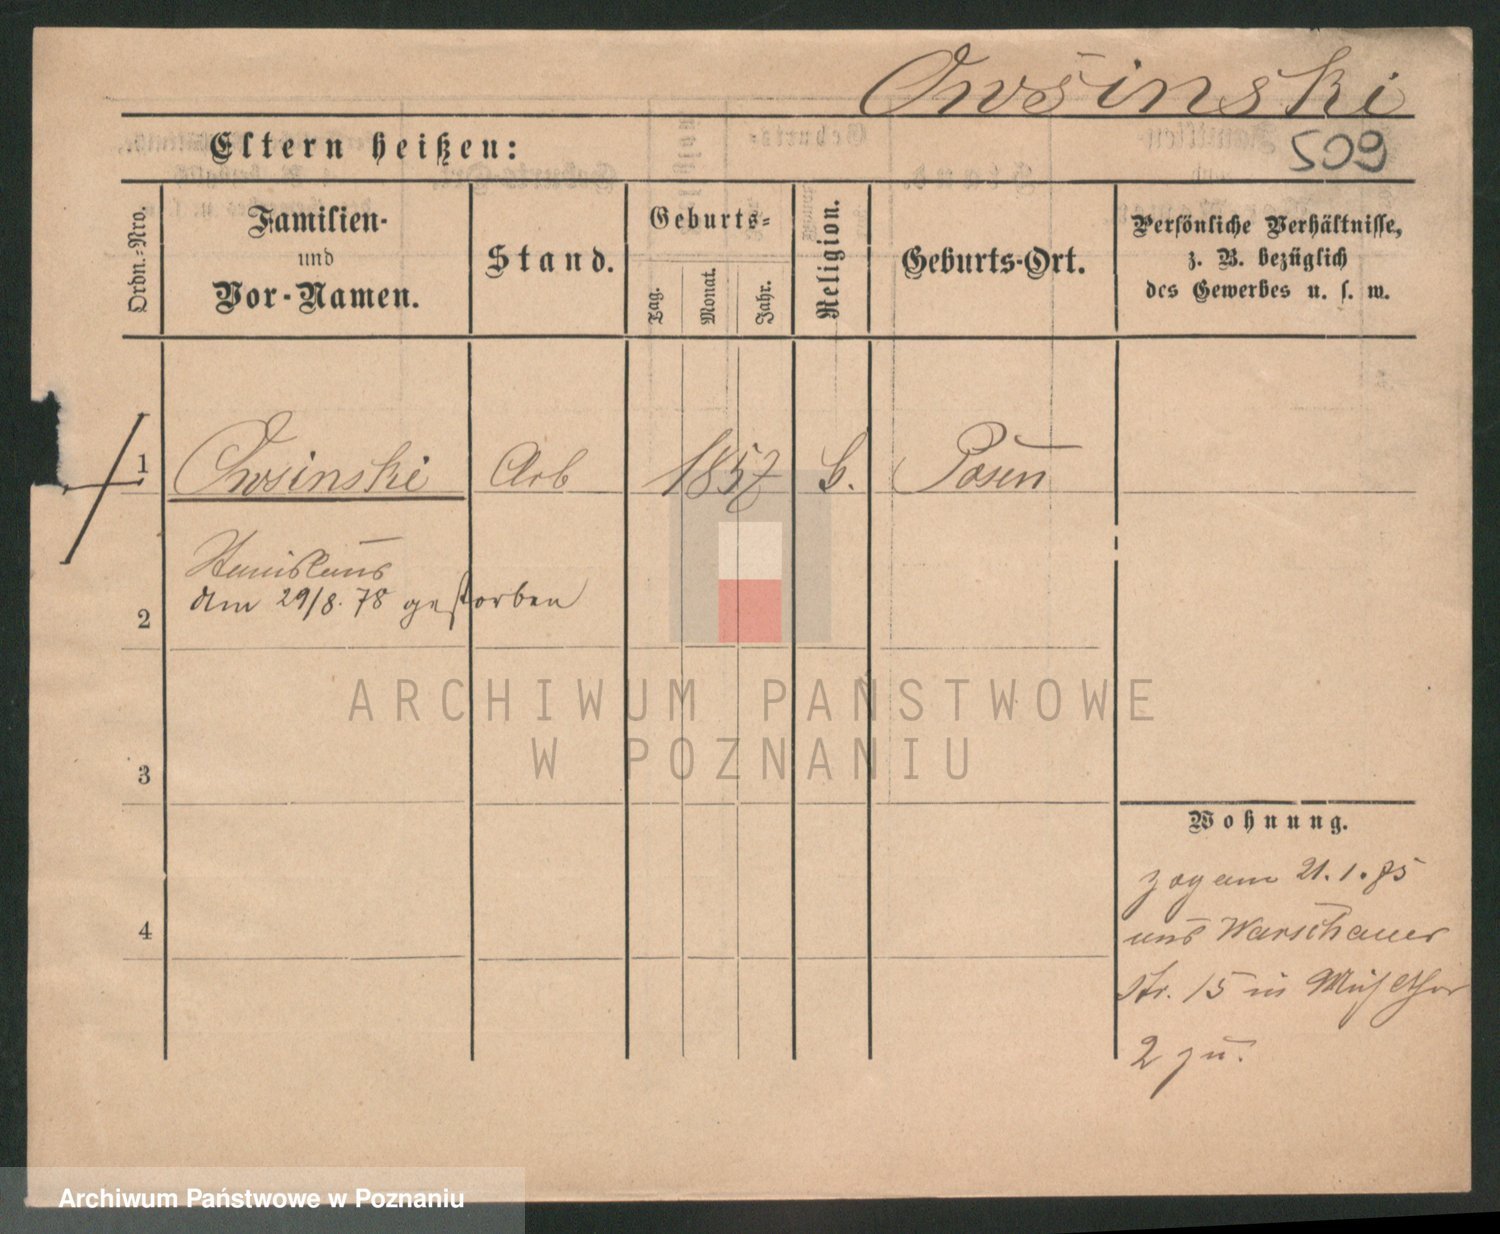 Owsinski
509
Eltern heißen:
Ordn.-Nro.
Familien-
und
Vor-Namen.
Stand.
Geburts-
Tag.
Monat.
Jahr.
Religion.
Geburts-Ort.
Persönliche Verhältnisse,
z. B. bezüglich
des Gewerbes u. s. w.
1
Owsinski
Arb
1857
Posen
Stanislaus
am 29/8. 78 gestorben
2
ARCHIWUM PAŃSTWOWE
W POZNANIU
3
Wohnung.
zog am 21.1.85
Warschauer
Str. 15 in
4
2 zu.
Archiwum Państwowe w Poznaniu